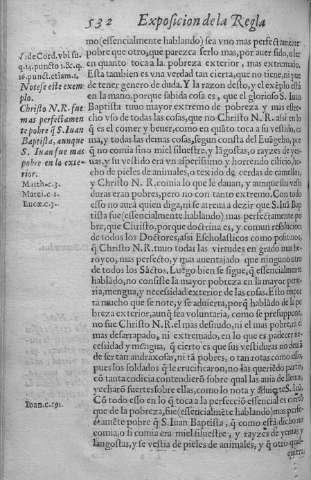 532 Exposicion de la Regla
mo (essencialmente hablando) sea vno mas perfectamente
pobre que otro, que parezca serlo mas, por auer sido, o ser
en quanto toca a la pobreza exterior, mas extremado.
Esta tambien es vna verdad tan cierta, que no tiene, ni puede
de tener genero de duda. Y la razon desto, y el exẽplo estã
en la mano, porque sabida cosa es, que el glorioso S. Iuan
Baptista tuuo mayor extremo de pobreza y mas estrecho
vso de todas las cosas, que no Christo N. R. assi en lo
q̃ es el comer y beuer, como en quãto toca a su vestido, cama,
y todas las demas cosas, segun consta del Euãgelio, por
q̃ no comia sino miel siluestre, y lãgostas, o rayzes de yeruas,
y su vestido era vn asperissimo y horrendo cilicio, hecho
de pieles de animales, o texido de cerdas de camellos,
y Christo N. R. comia lo que le dauan, y aunque sus vestiduras
eran pobres, pero no con tanto extremo. Con todo
esso no aurà quien diga, ni se atreua a dezir que S. Iuã Baptista
fue (essencialmente hablando) mas perfectamente pobre,
que Christo, porque doctrina es, y comun resolucion
de todos los Doctores, assi Escholasticos como positiuos,
q̃ Christo N. R. tuuo todas las virtudes en grado mas heroyco,
mas perfecto, y mas auentajado que ninguno otro
de todos los Sãctos. Luego bien se sigue, q̃ essencialmente
hablãdo, no consiste la mayor pobreza en la mayor penuria,
mengua, y necessidad exterior de las cosas. Esto importa
mucho que se note, y se aduierta, por q̃ hablãdo de la pobreza
exterior, aunq̃ sea voluntaria, como se presuppone,
no fue Christo N. R. el mas desnudo, ni el mas pobre, ni el
mas desarrapado, ni extremado, en lo que es padecer necessidad
y mẽgua, q̃ cierto es que sus vestiduras no deuiã
de ser tan andraxosas, ni tã pobres, o tan rotas como esso,
pues los soldados q̃ le crucificaron, no las querièdo partir,
cõ tanta codicia contendierõ sobre qual las auia de lleuar,
y echarõ suertes sobre ellas, como lo nota y aduierte S. Iuã.
Cõ todo esso en lo q̃ toca a la perfecciõ essencial es cierto
que de la pobreza, fue (essencialmẽte hablando) mas perfectamẽte
pobre q̃ S. Iuan Baptista, q̃ como está dicho no
comia, o si comia era miel siluestre, y rayzes de yeruas y
langostas, y se vestia de pieles de animales, y q̃ otro
V. de Cord. vbi su.
q. 14. puncto 1. & q.
16. punct. etiam. 1.
Notese este exemplo.
Christo N. R. fue
mas perfectamente
pobre q̃ S. Iuan
Baptista, aunque
S. Iuan fue mas
pobre en lo exterior.
Matth. c. 3.
Marci. c. 1.
Lucæ. c. 3.
Ioan. c. 19.